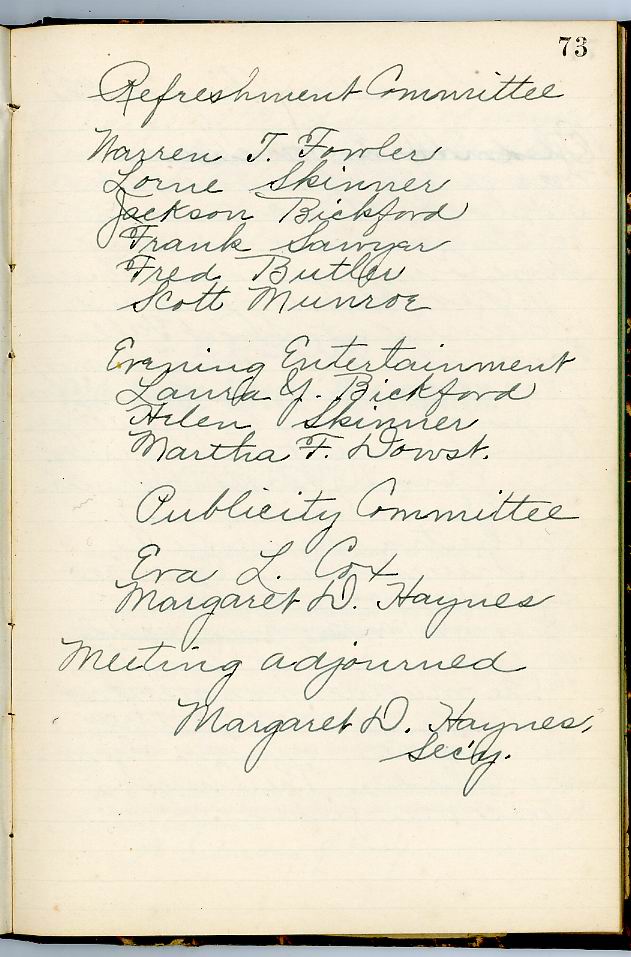 73
Refreshment Committee
Warren T. Fowler
Lorne Skinner
Jackson Bickford
Frank Sawyer
Fred Butler
Scott Munroe
Evening Entertainment
Laura G. Bickford
Helen Skinner
Martha F. Dowst.
Publicity Committee
Eva L. Cox
Margaret D. Haynes
Meeting adjourned
Margaret D. Haynes,
Sec'y.